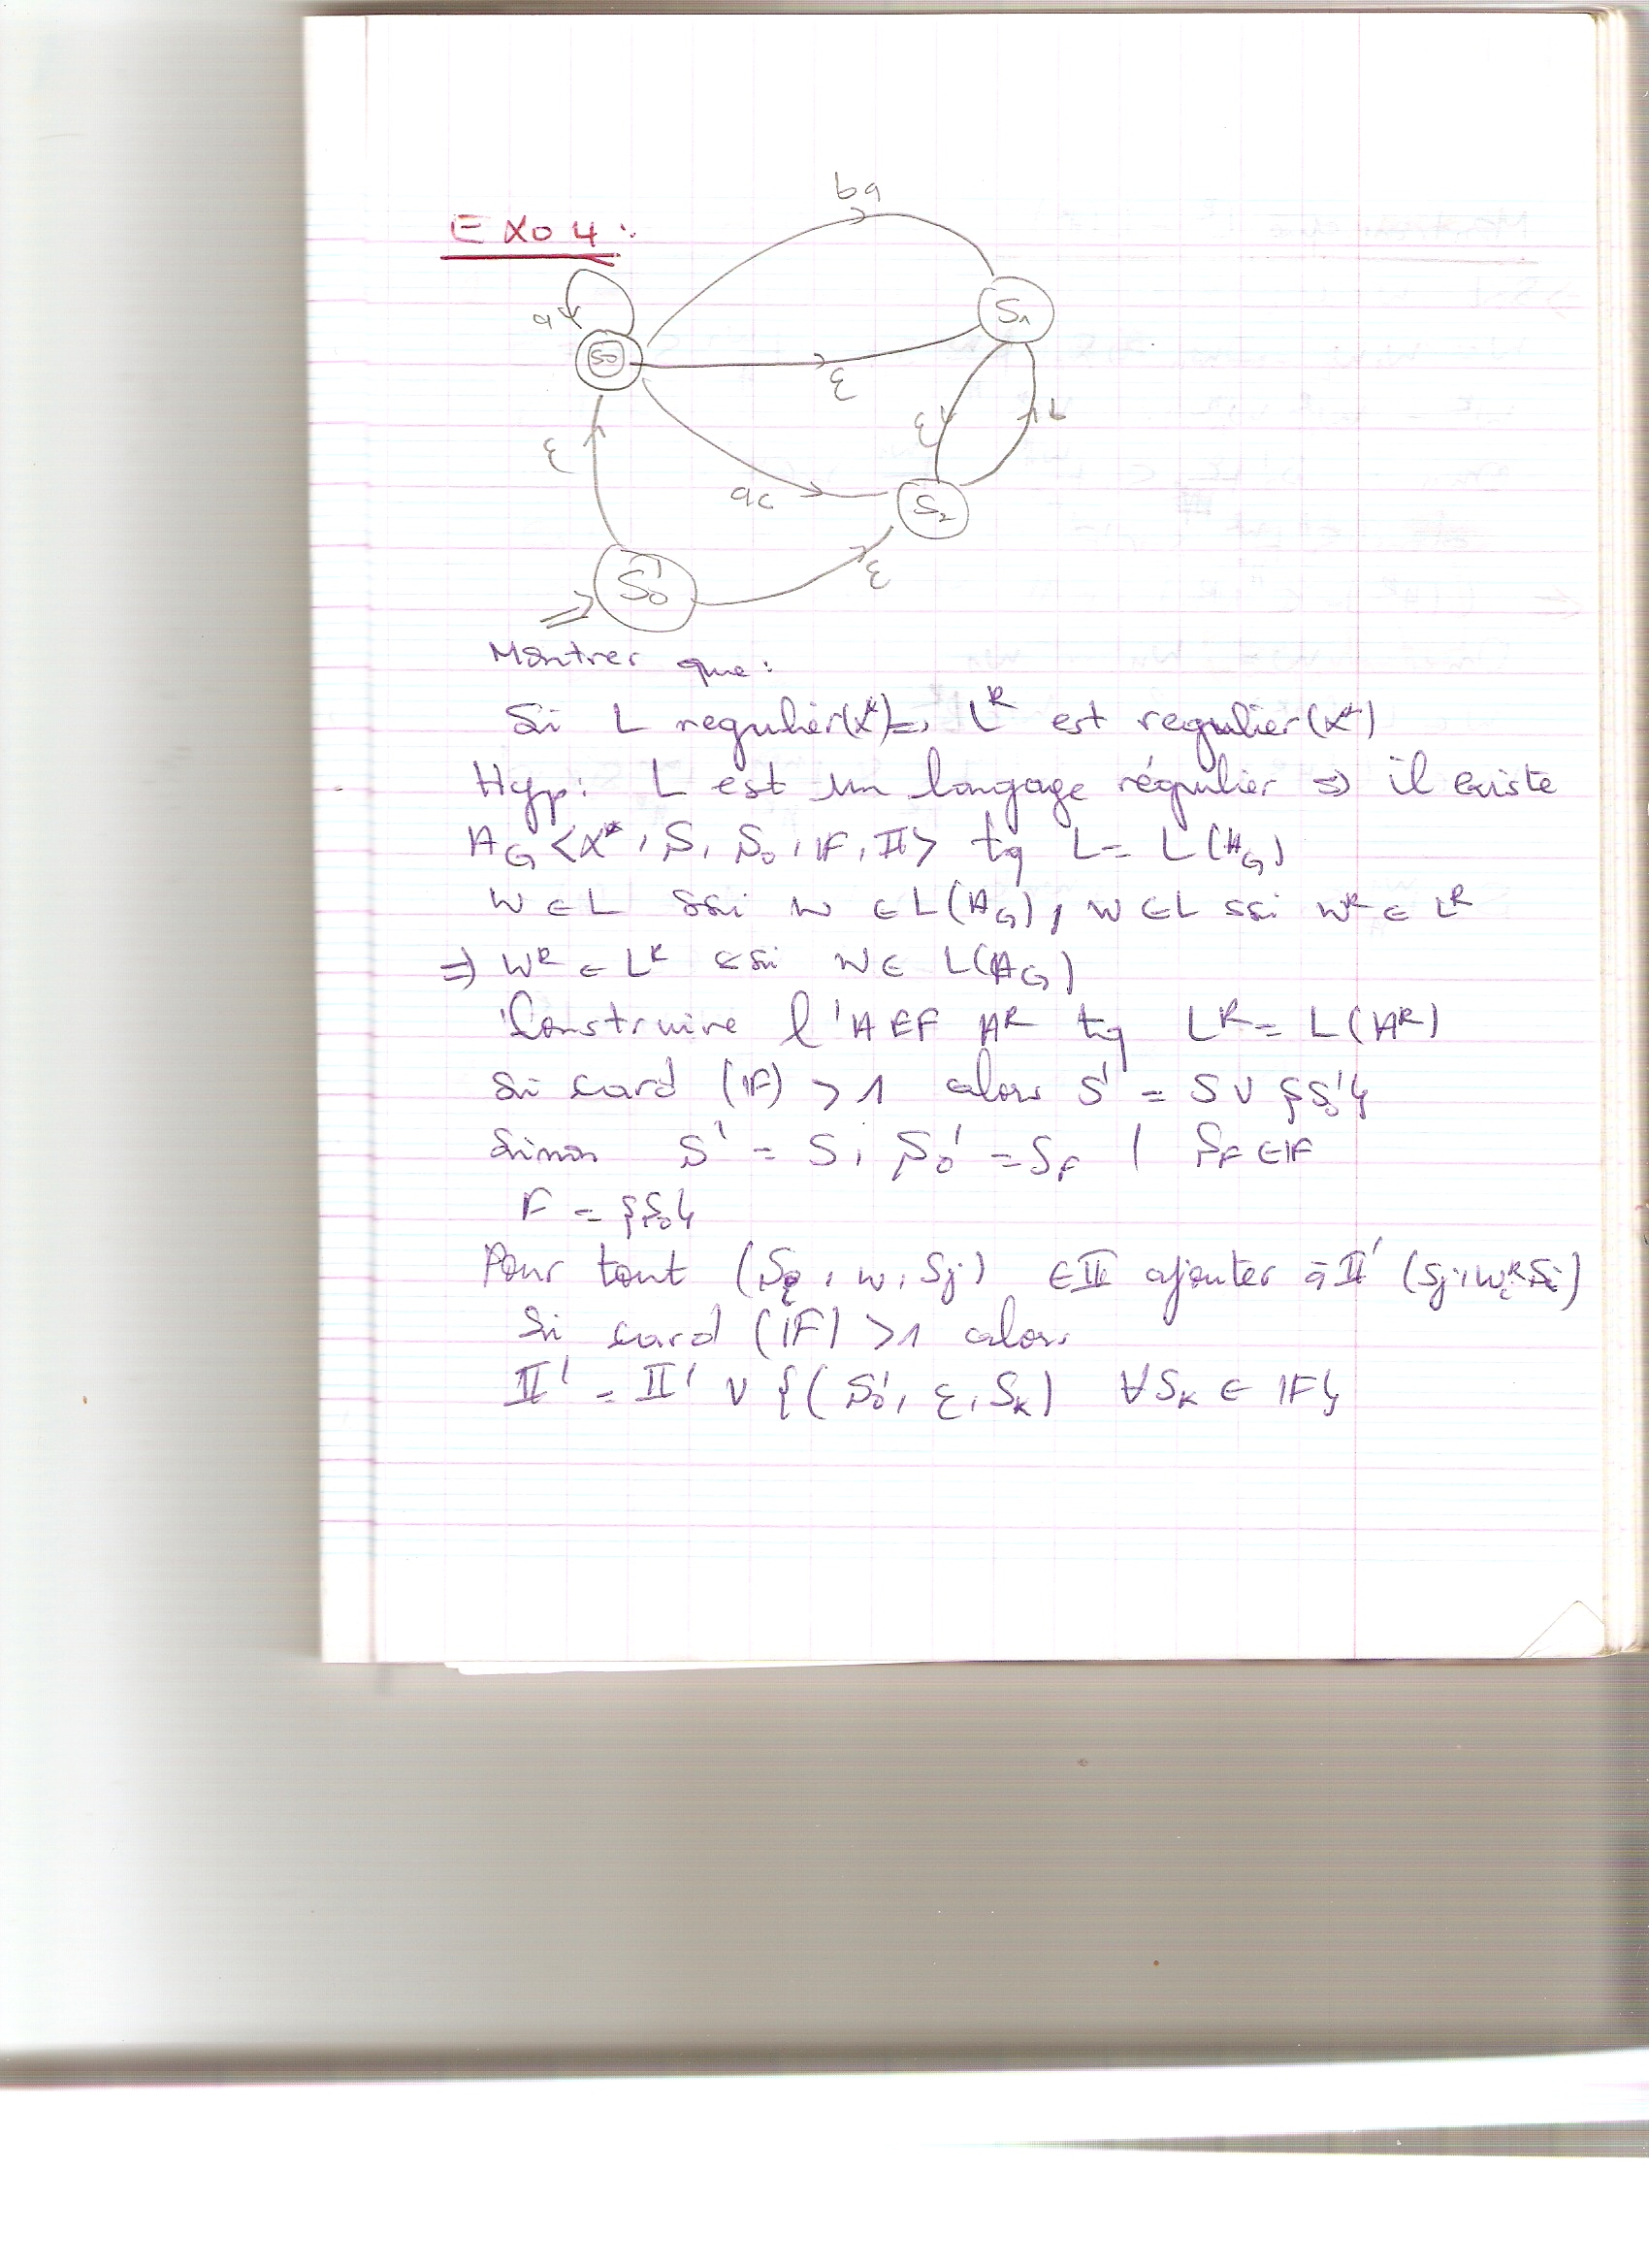 EXO 4 :
ba
a
S0
S1
ε
ε
b
ε
ac
S2
S'0
ε
Montrer que :
Si L regulier(X*) => L^R est regulier(X*)
Hyp: L est un langage régulier => il existe
A_G <X*, S, S0, IF, II> tq L = L(A_G)
W ∈ L ssi w ∈ L(A_G), w ∈ L ssi W^R ∈ L^R
=> W^R ∈ L^R ssi W ∈ L(A_G)
Construire l'AEF A^R tq L^R = L(A^R)
Si card (IF) > 1 alors S' = S ∪ {S'0}
Sinon S' = S, S0' = SF / SF ∈ IF
F = {S0}
Pour tout (Si, w, Sj) ∈ II ajouter à II' (Sj, w^R, Si)
Si card (IF) > 1 alors
II' = II' ∪ {(S0', ε, SK) ∀ SK ∈ IF}